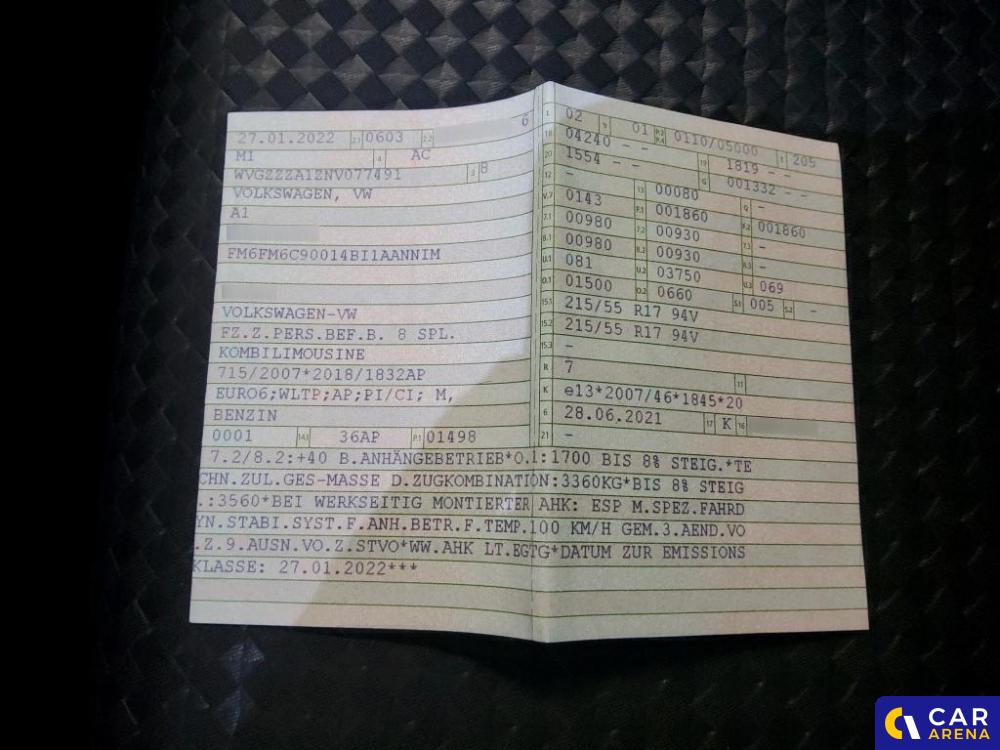 27.01.2022 2.1 0603 2.2 6
M1 4 AC
WVGZZZA1ZNV077491 3 8
VOLKSWAGEN, VW
A1
FM6FM6C90014BI1AANNIM
VOLKSWAGEN-VW
FZ.Z.PERS.BEF.B. 8 SPL.
KOMBILIMOUSINE
715/2007*2018/1832AP
EURO6;WLTP;AP;PI/CI; M,
BENZIN
0001 14.1 36AP P.1 01498
L 02 9 01 P.2 P.4 0110/05000 T 205
18 04240 - - 19 1819 - -
20 1554 - - G 001332 - -
12 - 13 00080 Q -
V.7 0143 F.1 001860 F.2 001860
7.1 00980 7.2 00930 7.3 -
8.1 00980 8.2 00930 8.3 -
U.1 081 U.2 03750 U.3 069
O.1 01500 O.2 0660 S.1 005 S.2 -
15.1 215/55 R17 94V
15.2 215/55 R17 94V
15.3 -
R 7 11
K e13*2007/46*1845*20
6 28.06.2021 17 K 16
21 -
7.2/8.2:+40 B.ANHÄNGEBETRIEB*O.1:1700 BIS 8% STEIG.*TE
CHN.ZUL.GES-MASSE D.ZUGKOMBINATION:3360KG*BIS 8% STEIG
.:3560*BEI WERKSEITIG MONTIERTER AHK: ESP M.SPEZ.FAHRD
YN.STABI.SYST.F.ANH.BETR.F.TEMP.100 KM/H GEM.3.AEND.VO
.Z.9.AUSN.VO.Z.STVO*WW.AHK LT.EGTG*DATUM ZUR EMISSIONS
KLASSE: 27.01.2022***
CAR
ARENA